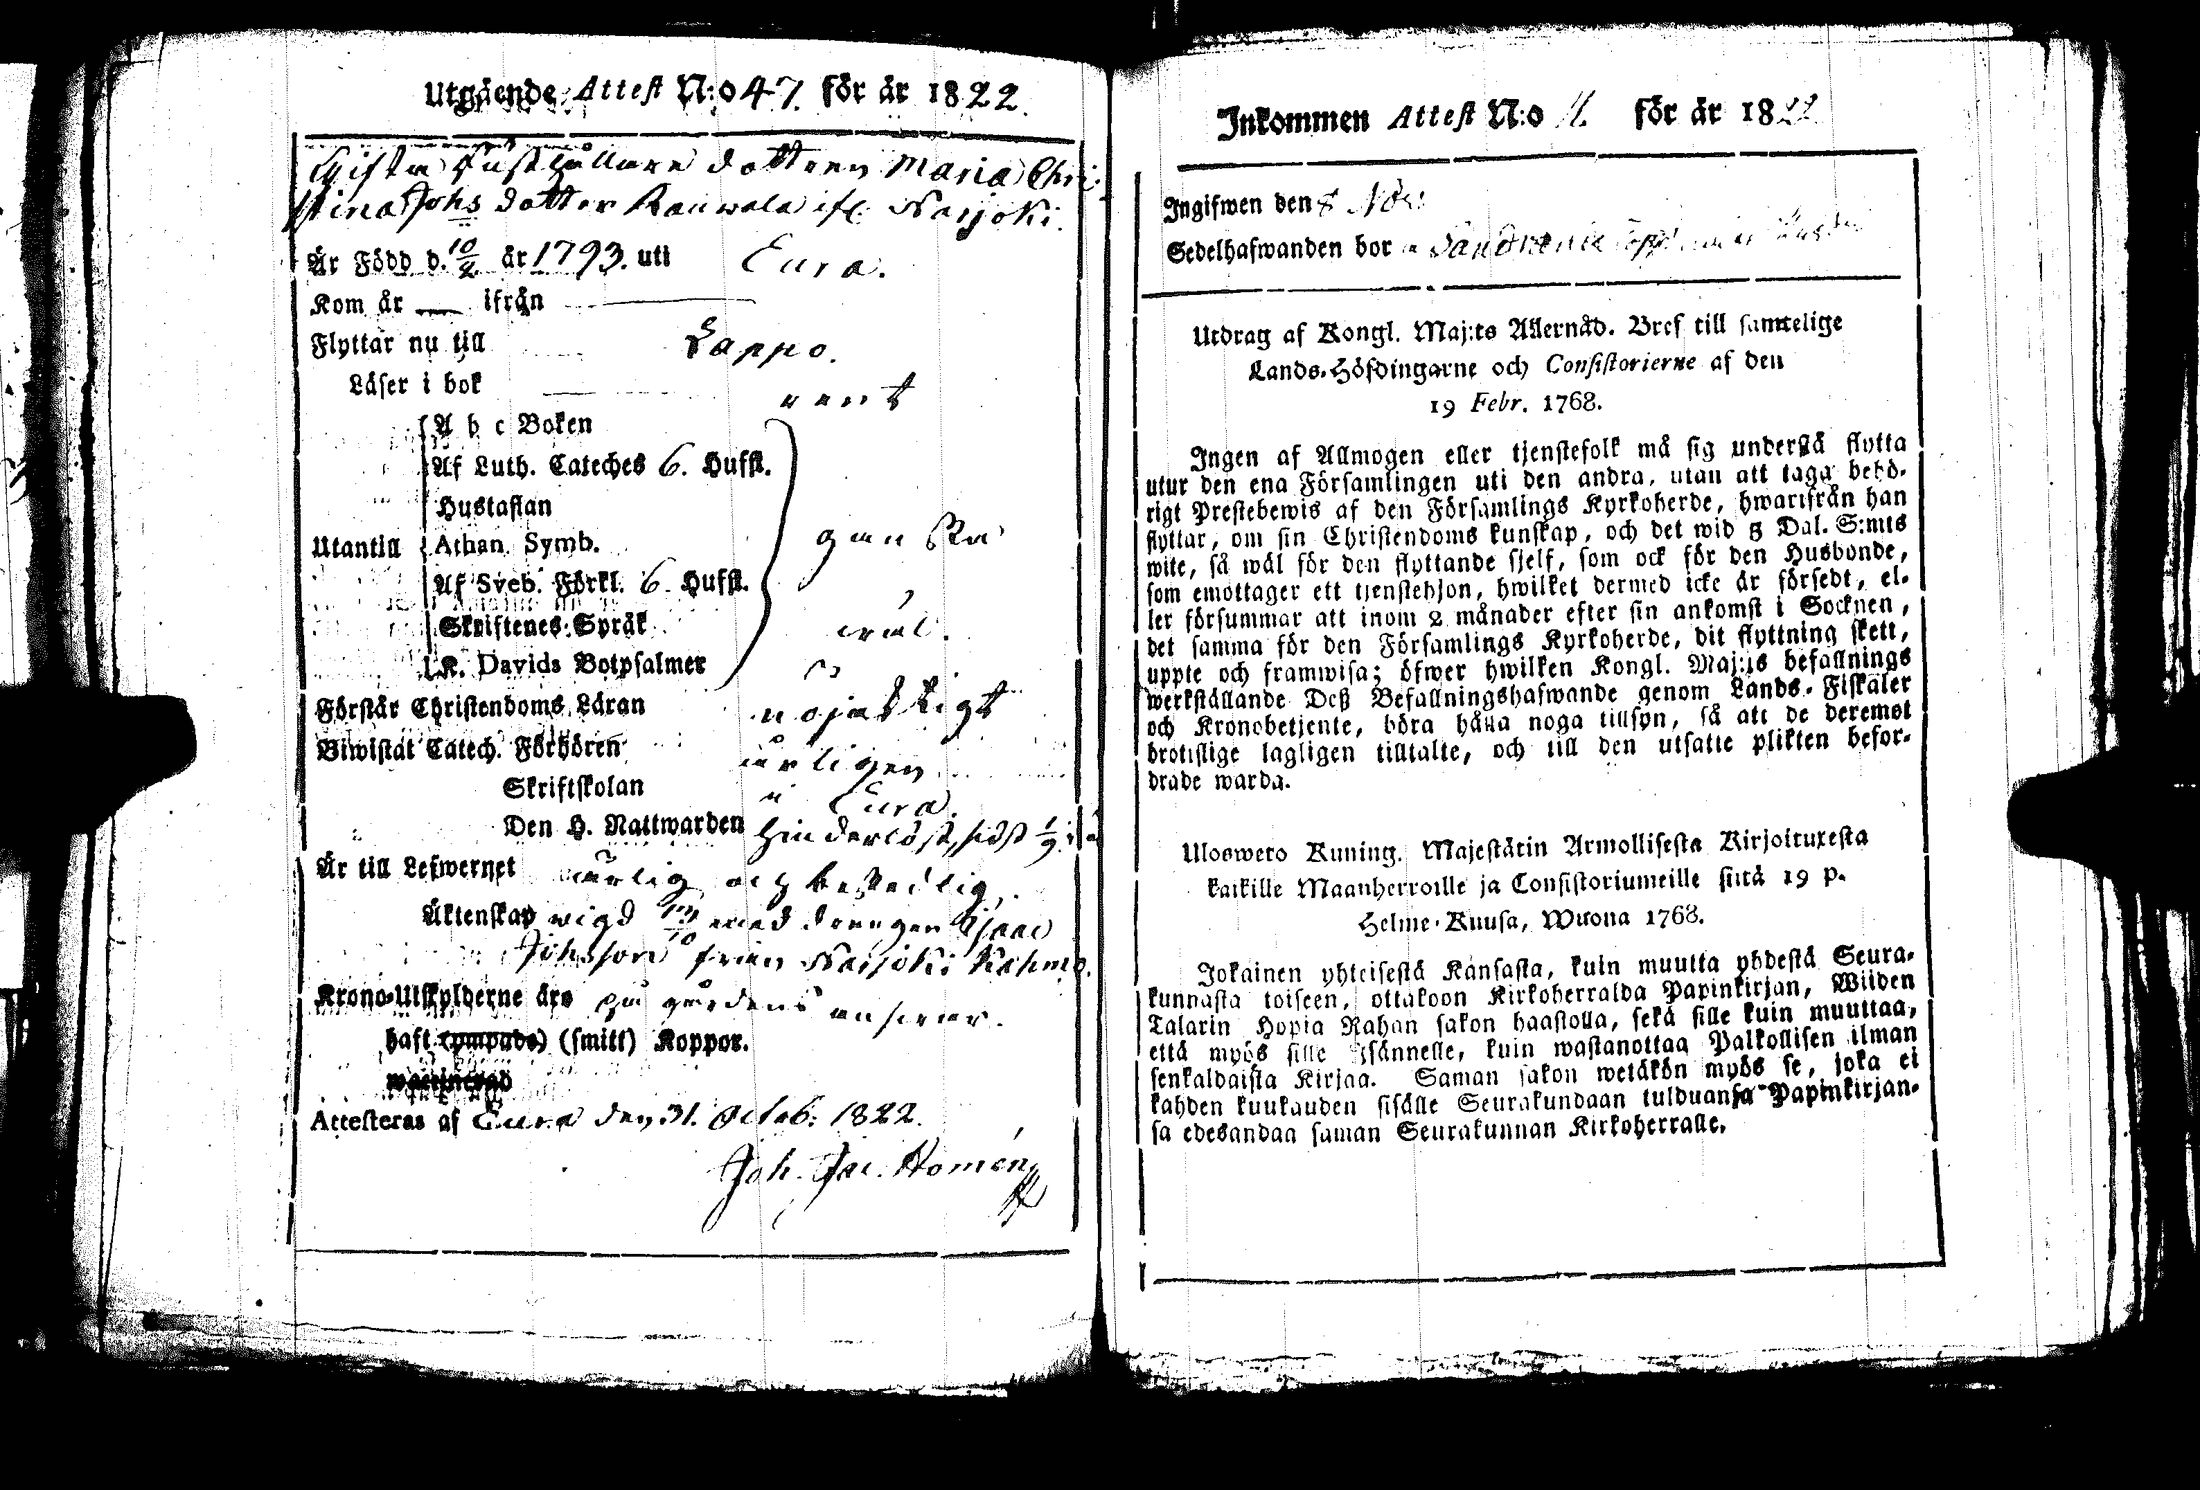 Utgående Attest N:o 47. för år 1822.
Gifta Rusthållare dottren Maria Chri-
stina Johs dotter Kauwala ifr. Naojoki.
Är Född d. 10/2 år 1793. uti Eura.
Kom år — ifrån —
Flyttar nu till Lappo.
Läser i bok rent
A b c Boken
Af Luth. Cateches 6. Hufst.
Hustaflan
Utantill Athan. Symb. ganska
Af Sveb. Förkl. 6. Hufst.
Skriftenes Språk wäl.
K. Davids Botpsalmer
Förstår Christendoms Läran nöjaktigt
Biwistat Catech. Förhören årligen
Skriftskolan i Eura.
Den H. Nattwarden Hinderlöst, sidst 1/9
Är till Lefwernet ärlig och beskedlig.
Äktenskap wigd med drengen Isaac
Johsson från Naojoki
Krono-Utskylderne äro på gårdens answar.
haft (ympade) (smitt) Koppor.
Attesteras af Eura den 31. Octob: 1822.
Joh. Jac. Homén
Inkommen Attest N:o för år 1822
Ingifwen den 8 Nov:
Sedelhafwanden bor
Utdrag af Kongl. Maj:ts Allernåd. Bref till samtelige
Lands-Höfdingarne och Consistorierne af den
19 Febr. 1768.
Ingen af Allmogen eller tjenstefolk må sig understå flytta
utur den ena Församlingen uti den andra, utan att taga behö-
rigt Prestebewis af den Församlings Kyrkoherde, hwarifrån han
flyttar, om sin Christendoms kunskap, och det wid 5 Dal. S:mts
wite, så wäl för den flyttande sjelf, som ock för den Husbonde,
som emottager ett tjenstehjon, hwilket dermed icke är försedt, el-
ler försummar att inom 2 månader efter sin ankomst i Socknen,
det samma för den Församlings Kyrkoherde, dit flyttning skett,
uppte och framwisa; öfwer hwilken Kongl. Maj:ts befallnings
werkställande Deß Befallningshafwande genom Lands-Fiskaler
och Kronobetjente, böra hålla noga tillsyn, så att de deremot
brotislige lagligen tilltalte, och till den utsatte plikten befor-
drade warda.
Uloswero Kuning. Majestätin Armollisesta Kirjoituxesta
kaikille Maanherroille ja Consistoriumeille siitä 19 p.
Helme-Kuusa, Wuona 1768.
Jokainen yhteisestä Kansasta, kuin muutta yhdestä Seura-
kunnasta toiseen, ottakoon Kirkoherralda Papinkirjan, Wiiden
Talarin Hopia Rahan sakon haastolla, sekä sille kuin muuttaa,
että myös sille Isännelle, kuin wastanottaa Palkollisen ilman
senkaldaista Kirjaa. Saman sakon wetäkön myös se, joka ei
kahden kuukauden sisälle Seurakundaan tulduansa Papinkirjan-
sa edesandaa saman Seurakunnan Kirkoherralle.